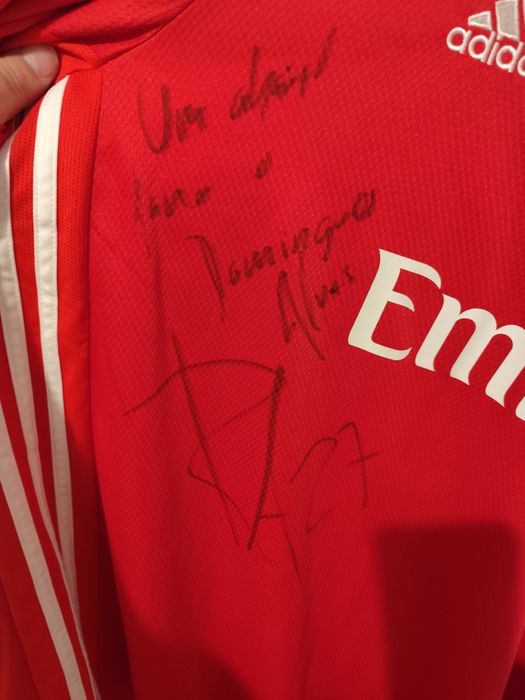 adidas
Um abraço
para o
Domingues
Alves
Em
27